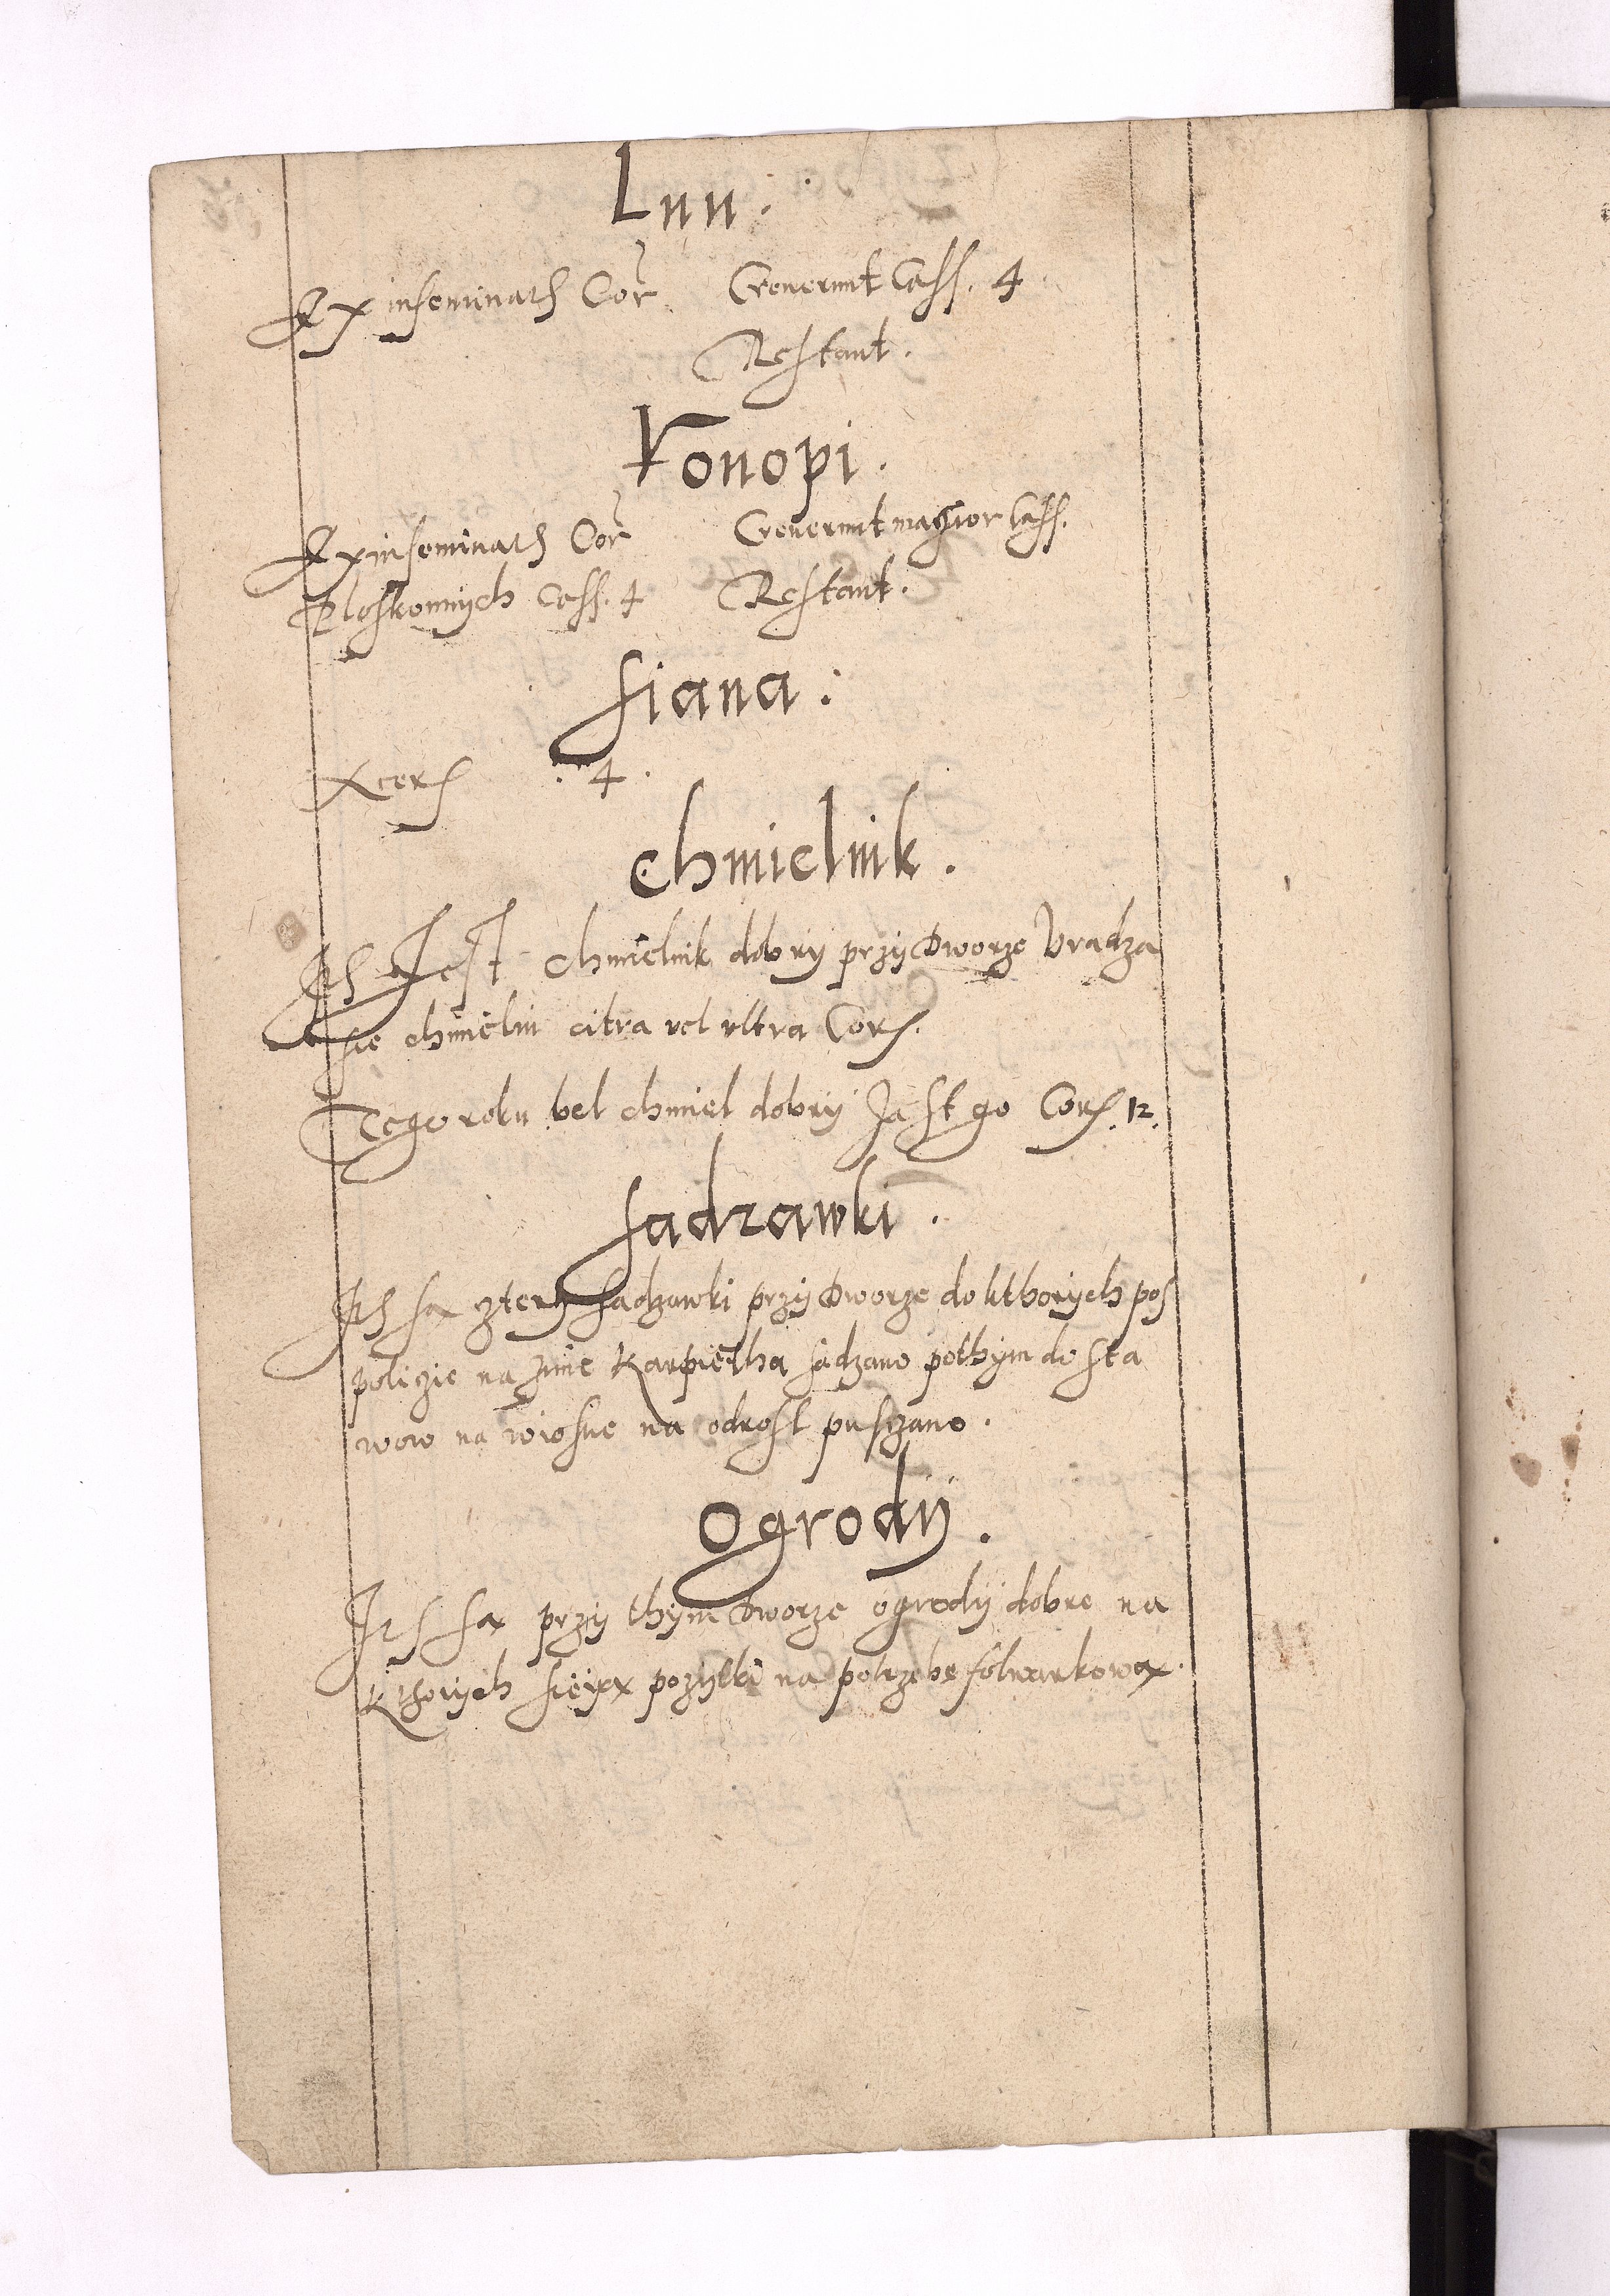 Lnu.
Ex inseminatis Cor̃ Creuerunt Cass. 4
Restant.
Konopi.
Ex inseminatis Cor̃ Creuerunt Cass.
Ploskonnych Cass. 4 Restant.
Siana:
Acers . 4 .
Chmielnik.
Its Jest chmielnik dobrij przij Dworze Vradza
sie chmielu citra vel vltra Cors.
Tego roku bel chmiel dobrij Jast go Cors. 12.
Sadzawki.
Its sa czterij sadzawki przij Dworze do kthorijch pos
policzie na zime Karpietha sadzano pothijm do sta
wow na wiosne na odrost pusczano.
Ogrodij.
Its sa przij thijm Dworze ogrodij dobre na
kthorijch pozijtki na potrzebe folwarkowa.